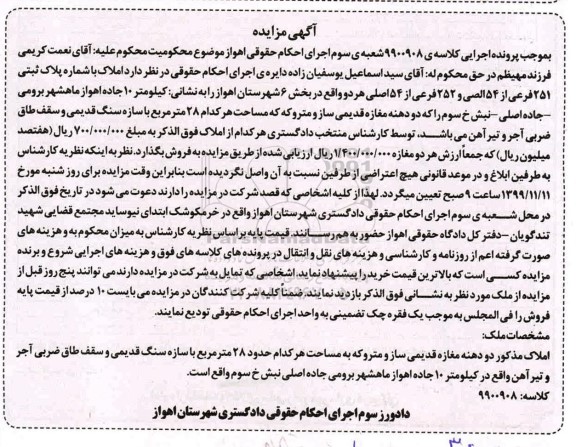 آگهی مزایده
بموجب پرونده اجرایی کلاسه ی ۹۹۰۰۹۰۸ شعبه ی سوم اجرای احکام حقوقی اهواز موضوع محکومیت محکوم علیه: آقای نعمت کریمی
فرزند مهیظم در حق محکوم له: آقای سید اسماعیل یوسفیان زاده دایره ی اجرای احکام حقوقی در نظر دارد املاک با شماره پلاک ثبتی
۲۵۱ فرعی از ۵۴ الصی و ۲۵۲ فرعی از ۵۴ اصلی هر دو واقع در بخش ۶ شهرستان اهواز را به نشانی: کیلومتر ۱۰ جاده اهواز ماهشهر برومی
- جاده اصلی - نبش خ سوم را که دو دهنه مغازه قدیمی ساز و متروکه که مساحت هر کدام ۲۸ مترمربع با سازه سنگ قدیمی و سقف طاق
ضربی آجر و تیر آهن می باشد، توسط کارشناس منتخب دادگستری هر کدام از املاک فوق الذکر به مبلغ ۷۰۰/۰۰۰/۰۰۰ ریال (هفتصد
میلیون ریال) که جمعاً ارزش هر دو مغازه ۱/۴۰۰/۰۰۰/۰۰۰ ریال ارزیابی شده از طریق مزایده به فروش بگذارد. نظر به اینکه نظریه کارشناس
به طرفین ابلاغ و در موعد قانونی هیچ اعتراضی از طرفین نسبت به آن واصل نگردیده است بنابراین وقت مزایده برای روز شنبه مورخ
۱۳۹۹/۱۱/۱۱ ساعت ۹ صبح تعیین میگردد. لهذا از کلیه اشخاصی که قصد شرکت در مزایده را دارند دعوت می شود در تاریخ فوق الذکر
در محل شعبه ی سوم اجرای احکام حقوقی دادگستری شهرستان اهواز واقع در خرمکوشک ابتدای نیوساید مجتمع قضایی شهید
تندگویان - دفتر کل دادگاه حقوقی اهواز حضور به هم رسانند. قیمت پایه بر اساس نظریه کارشناس به میزان محکوم به و هزینه های
صورت گرفته اعم از روزنامه و کارشناسی و هزینه های نقل و انتقال در پرونده های کلاسه های فوق و هزینه های اجرایی شروع و برنده
مزایده کسی است که بالاترین قیمت خرید را پیشنهاد نماید. اشخاصی که تمایل به شرکت در مزایده دارند می توانند پنج روز قبل از
مزایده از ملک مورد نظر به نشانی فوق الذکر بازدید نمایند. ضمناً کلیه شرکت کنندگان در مزایده می بایست ۱۰ درصد از قیمت پایه
فروش را فی المجلس به موجب یک فقره چک تضمینی به واحد اجرای احکام حقوقی تودیع نمایند.
مشخصات ملک:
املاک مذکور دو دهنه مغازه قدیمی ساز و متروکه به مساحت هر کدام حدود ۲۸ مترمربع با سازه سنگ قدیمی و سقف طاق ضربی آجر
و تیر آهن واقع در کیلومتر ۱۰ جاده اهواز ماهشهر برومی جاده اصلی نبش خ سوم واقع است.
کلاسه: ۹۹۰۰۹۰۸
دادورز سوم اجرای احکام حقوقی دادگستری شهرستان اهواز